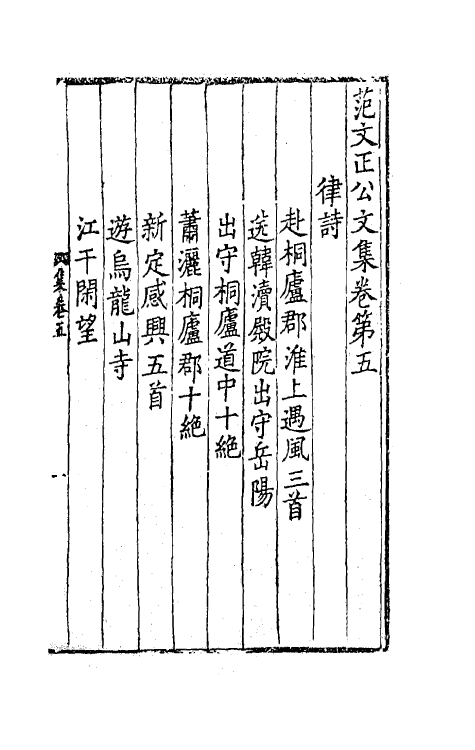 范文正公文集卷第五
律詩
赴桐廬郡淮上遇風三首
送韓瀆殿院出守岳陽
出守桐廬道中十絶
蕭灑桐廬郡十絶
新定感興五首
遊烏龍山寺
江干閑望
集卷五
一